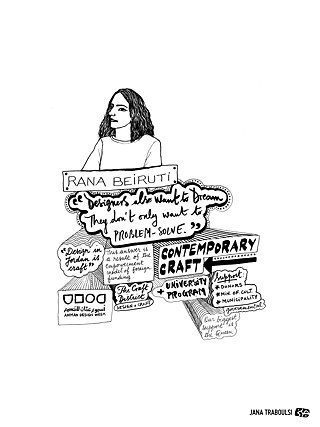 RANA BEIRUTI
"Designers also want to Dream
They don't only want to
PROBLEM-SOLVE."
"Design in
Jordan is
craft"
This answer is
a result of the
empowerment
model of foreign
funding.
CONTEMPORARY
CRAFT
The Craft
District
DESIGN + CRAFT
+ UNIVERSITY
PROGRAM
Support
* DONORS
* MIN. OF CULT.
* MUNICIPALITY
governmental
Our biggest
support is
the Queen
أسبوع عمان للتصميم
AMMAN DESIGN WEEK
JANA TRABOULSI